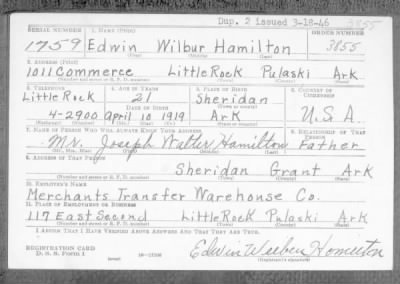 Dup. 2 issued 3-18-46 3855
SERIAL NUMBER 1. NAME (Print) ORDER NUMBER
1759 Edwin Wilbur Hamilton 3855
(First) (Middle) (Last)
2. ADDRESS (Print)
1011 Commerce Little Rock Pulaski Ark
(Number and street or R. F. D. number) (Town) (County) (State)
3. TELEPHONE 4. AGE IN YEARS 5. PLACE OF BIRTH 6. COUNTRY OF CITIZENSHIP
Little Rock 21 Sheridan
DATE OF BIRTH
4-2900 April 10 1919 Ark U.S.A.
7. NAME OF PERSON WHO WILL ALWAYS KNOW YOUR ADDRESS 8. RELATIONSHIP OF THAT PERSON
Mr. Joseph Walter Hamilton Father
(Mr., Mrs., Miss) (First) (Middle) (Last)
9. ADDRESS OF THAT PERSON
Sheridan Grant Ark
(Number and street or R. F. D. number) (Town) (County) (State)
10. EMPLOYER'S NAME
Merchants Transfer Warehouse Co.
11. PLACE OF EMPLOYMENT OR BUSINESS
117 East Second Little Rock Pulaski Ark
(Number and street or R. F. D. number) (Town) (County) (State)
I AFFIRM THAT I HAVE VERIFIED ABOVE ANSWERS AND THAT THEY ARE TRUE.
REGISTRATION CARD
D. S. S. Form 1
Edwin Wilbur Hamilton
(Registrant's signature)